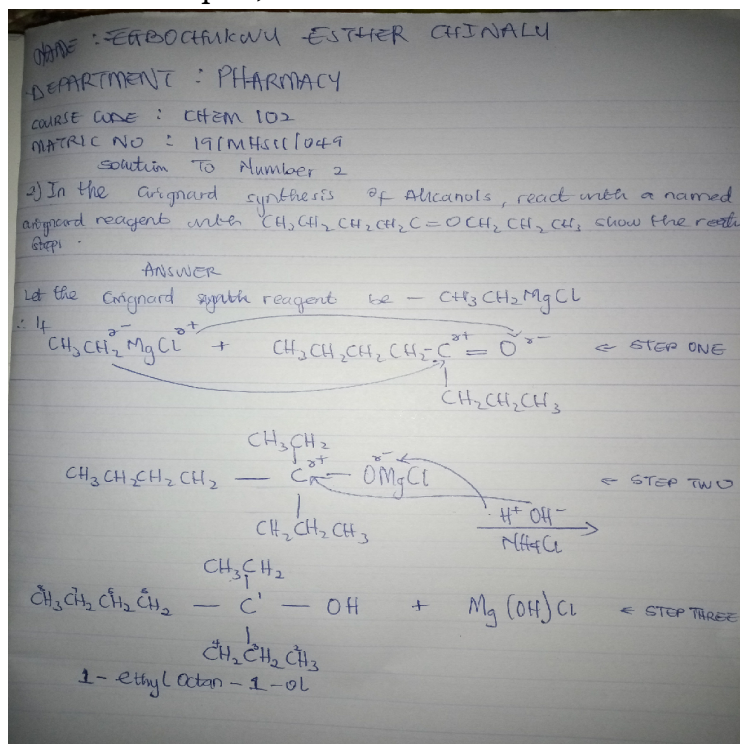 NAME : EGBOCHUKWU ESTHER CHINALU
DEPARTMENT : PHARMACY
COURSE CODE : CHEM 102
MATRIC NO : 19/MHS11/049
Solution To Number 2
2) In the Grignard synthesis of Alkanols, react with a named
Grignard reagent with CH₃CH₂CH₂CH₂C=OCH₂CH₂CH₃ show the
steps.
ANSWER
Let the Grignard reagent be - CH₃CH₂MgCl
CH₃CH₂ᵟ⁻MgClᵟ⁺ + CH₃CH₂CH₂CH₂-Cᵟ⁺=Oᵟ⁻ ← STEP ONE
CH₂CH₂CH₃
CH₃CH₂
CH₃CH₂CH₂CH₂ — Cᵟ⁺ — Oᵟ⁻MgCl ← STEP TWO
H⁺ OH⁻
CH₂CH₂CH₃
NH₄Cl
CH₃CH₂
CH₃CH₂CH₂CH₂ — C¹ — OH + Mg(OH)Cl ← STEP THREE
CH₂CH₂CH₃
1-ethyl octan-1-ol